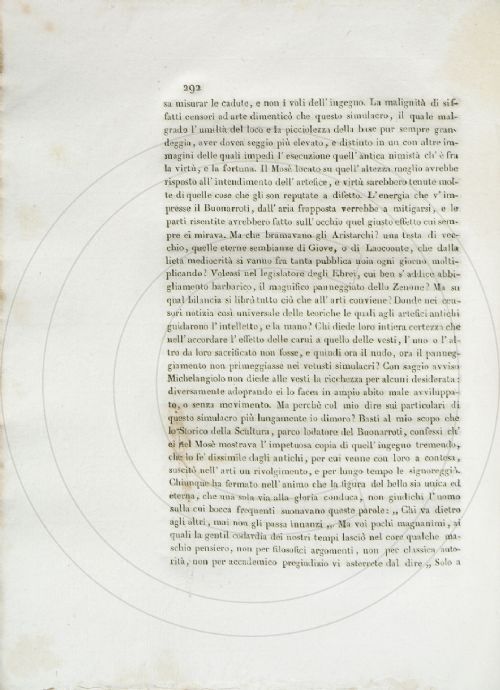 292
sa misurar le cadute, e non i voli dell' ingegno. La malignità di sif-
fatti censori ad arte dimenticò che questo simulacro, il quale mal-
grado l' umiltà del loco e la picciolezza della base pur sempre gran-
deggia, aver dovea seggio più elevato, e distinto in un con altre im-
magini delle quali impedì l' esecuzione quell' antica nimistà ch' è fra
la virtù, e la fortuna. Il Mosè locato su quell' altezza meglio avrebbe
risposto all' intendimento dell' artefice, e virtù sarebbero tenute mol-
te di quelle cose che gli son reputate a difetto. L' energia che v' im-
presse il Buonarroti, dall' aria frapposta verrebbe a mitigarsi, e le
parti risentite avrebbero fatto sull' occhio quel giusto effetto cui sem-
pre ei mirava. Ma che bramavano gli Aristarchi? una testa di vec-
chio, quelle eterne sembianze di Giove, o di Laocoonte, che dalla
lieta mediocrità si vanno fra tanta pubblica noia ogni giorno molti-
plicando? Voleasi nel legislatore degli Ebrei, cui ben s' addice abbi-
gliamento barbarico, il magnifico panneggiato dello Zenone? Ma su
qual bilancia si librò tutto ciò che all' arti conviene? Donde nei cen-
sori notizia così universale delle teoriche le quali agli artefici antichi
guidarono l' intelletto, e la mano? Chi diede loro intiera certezza che
nell' accordare l' effetto delle carni a quello delle vesti, l' uno o l' al-
tro da loro sacrificato non fosse, e quindi ora il nudo, ora il panneg-
giamento non primeggiasse nei vetusti simulacri? Con saggio avviso
Michelangiolo non diede alle vesti la ricchezza per alcuni desiderata:
diversamente adoprando ei lo facea in ampio abito male avviluppa-
to, o senza movimento. Ma perchè col mio dire sui particolari di
questo simulacro più lungamente io dimoro? Basti al mio scopo che
lo Storico della Scultura, parco lodatore del Buonarroti, confessi ch'
ei nel Mosè mostrava l' impetuosa copia di quell' ingegno tremendo,
che lo fe' dissimile dagli antichi, per cui venne con loro a contesa,
suscitò nell' arti un rivolgimento, e per lungo tempo le signoreggiò.
Chiunque ha fermato nell' animo che la figura del bello sia unica ed
eterna, che una sola via alla gloria conduca, non giudichi l' uomo
sulla cui bocca frequenti suonavano queste parole: „ Chi va dietro
agli altri, mai non gli passa innanzi „. Ma voi pochi magnanimi, ai
quali la gentil codardia dei nostri tempi lasciò nel core qualche ma-
schio pensiero, non per filosofici argomenti, non per classica auto-
rità, non per accademico pregiudizio vi asterrete dal dire „ Solo a